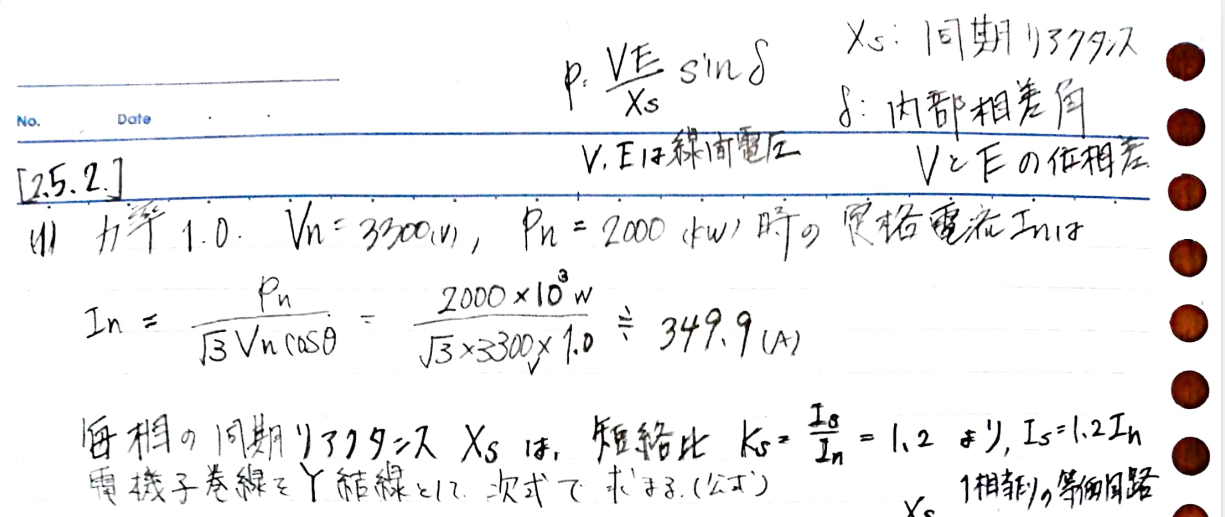 P = VE/Xs sin δ
Xs: 同期リアクタンス
δ: 内部相差角
No. Date
V, Eは線間電圧
VとEの位相差
[2.5.2.]
(1) 力率 1.0. Vn = 3300(V), Pn = 2000 (kW) 時の定格電流Inは
In = Pn/√3 Vn cosθ = 2000×10³W/√3×3300×1.0 ≒ 349.9 (A)
毎相の同期リアクタンス Xs は, 短絡比 Ks = Is/In = 1.2 より, Is=1.2In
電機子巻線をY結線として 次式で求まる.(公式)
1相当りの等価回路
Xs